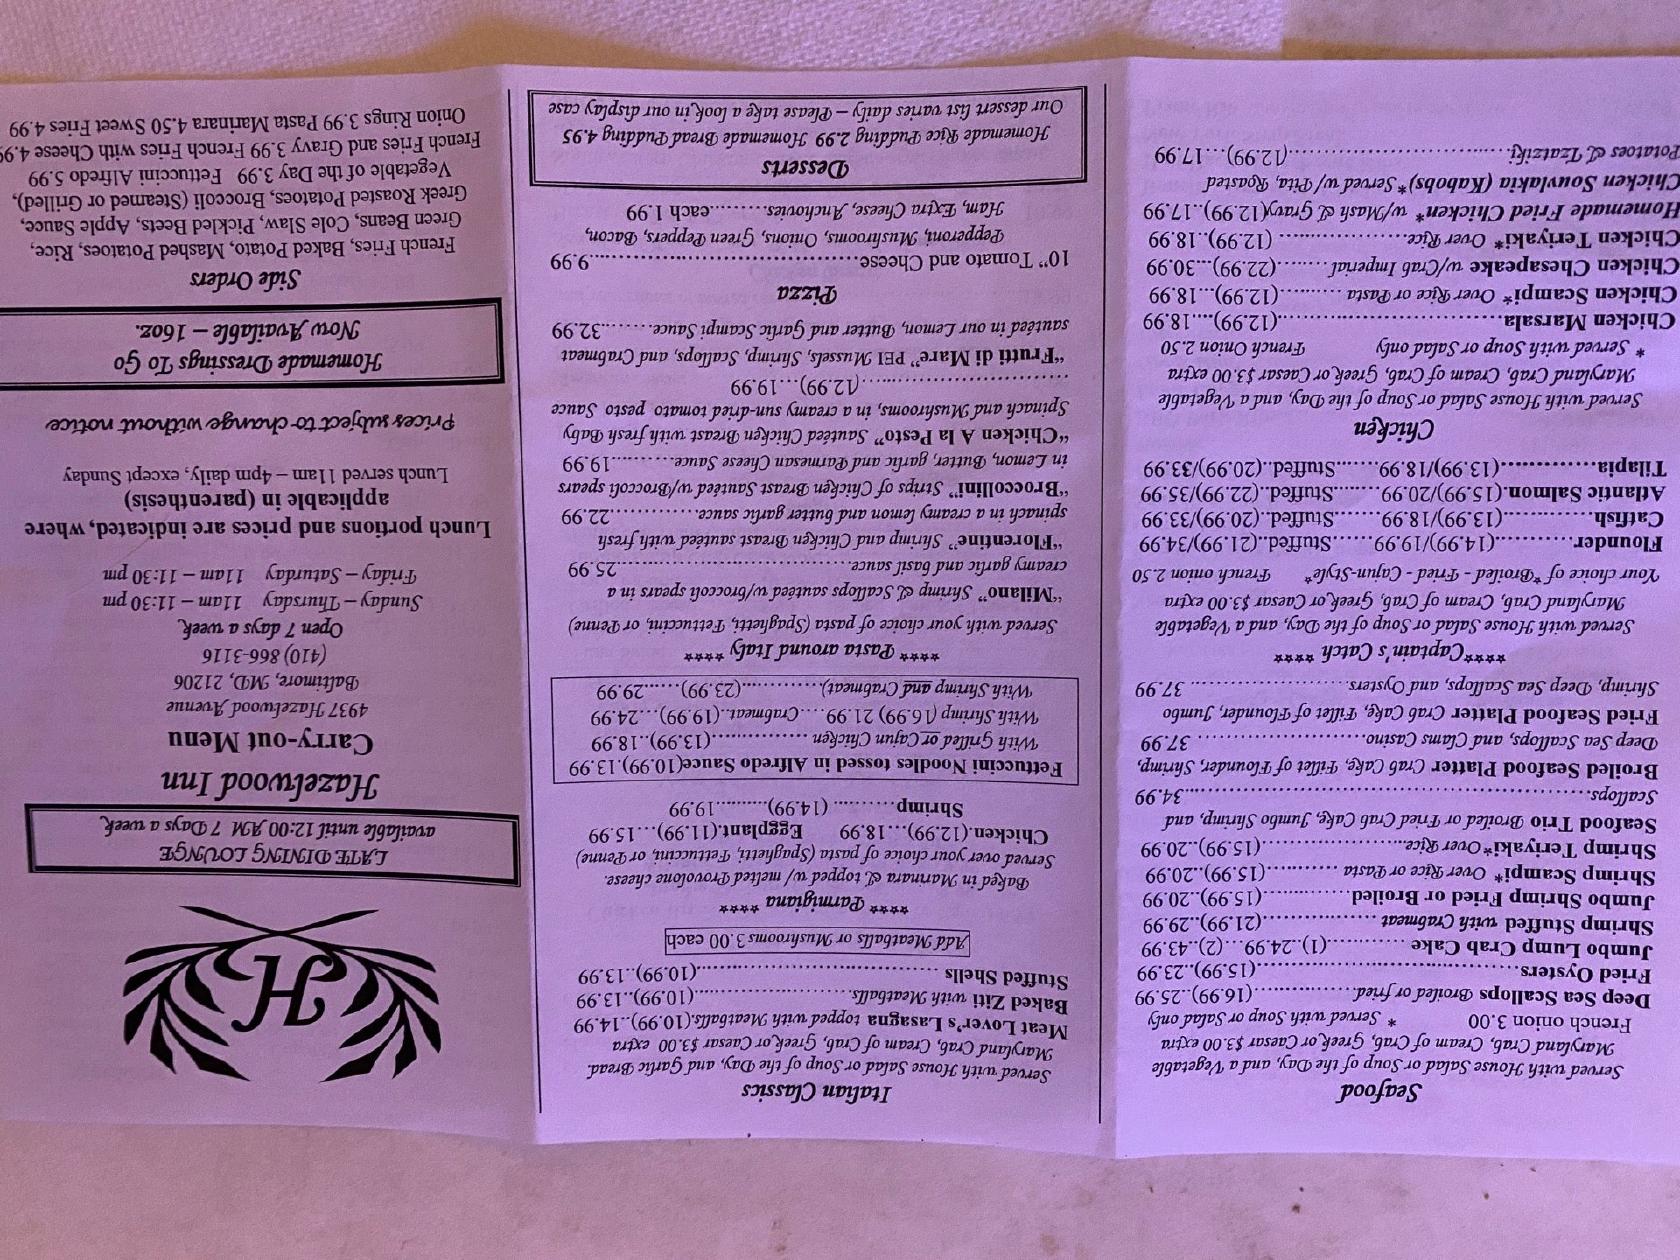 Seafood
Served with House Salad or Soup of the Day, and a Vegetable
Maryland Crab, Cream of Crab, Greek or Caesar $3.00 extra
French onion 3.00 * Served with Soup or Salad only
Deep Sea Scallops Broiled or fried..............(16.99)..25.99
Fried Oysters..........................................(15.99)..23.99
Jumbo Lump Crab Cake ............(1)..24.99...(2)..43.99
Shrimp Stuffed with Crabmeat ..................(21.99)..29.99
Jumbo Shrimp Fried or Broiled..............(15.99)..20.99
Shrimp Scampi* Over Rice or Pasta ............(15.99)..20.99
Shrimp Teriyaki*Over Rice........................(15.99)..20.99
Seafood Trio Broiled or Fried Crab Cake, Jumbo Shrimp, and
Scallops..................................................................34.99
Broiled Seafood Platter Crab Cake, Fillet of Flounder, Shrimp,
Deep Sea Scallops, and Clams Casino......................... 37.99
Fried Seafood Platter Crab Cake, Fillet of Flounder, Jumbo
Shrimp, Deep Sea Scallops, and Oysters....................... 37.99
****Captain's Catch ****
Served with House Salad or Soup of the Day, and a Vegetable
Maryland Crab, Cream of Crab, Greek or Caesar $3.00 extra
Your choice of *Broiled - Fried - Cajun-Style* French onion 2.50
Flounder..........(14.99)/19.99.......Stuffed..(21.99)/34.99
Catfish............(13.99)/18.99.......Stuffed..(20.99)/33.99
Atlantic Salmon.(15.99)/20.99.......Stuffed..(22.99)/35.99
Tilapia.............(13.99)/18.99.......Stuffed..(20.99)/33.99
Chicken
Served with House Salad or Soup of the Day, and a Vegetable
Maryland Crab, Cream of Crab, Greek or Caesar $3.00 extra
* Served with Soup or Salad only French Onion 2.50
Chicken Marsala..................................(12.99)....18.99
Chicken Scampi* Over Rice or Pasta ..........(12.99)...18.99
Chicken Chesapeake w/Crab Imperial ........(22.99)...30.99
Chicken Teriyaki* Over Rice................... (12.99)..18.99
Homemade Fried Chicken* w/Mash & Gravy(12.99)..17.99
Chicken Souvlakia (Kabobs)*Served w/Pita, Roasted
Potatoes & Tzatziki.................................(12.99)...17.99
Italian Classics
Served with House Salad or Soup of the Day, and Garlic Bread.
Maryland Crab, Cream of Crab, Greek or Caesar $3.00 extra
Meat Lover's Lasagna topped with Meatballs.(10.99)..14.99
Baked Ziti with Meatballs........................(10.99)..13.99
Stuffed Shells .......................................(10.99)..13.99
Add Meatballs or Mushrooms 3.00 each
**** Parmigiana ****
Baked in Marinara & topped w/ melted Provolone cheese.
Served over your choice of pasta (Spaghetti, Fettuccini, or Penne)
Chicken.(12.99)...18.99 Eggplant.(11.99)...15.99
Shrimp......... (14.99)..........19.99
Fettuccini Noodles tossed in Alfredo Sauce(10.99).13.99
With Grilled or Cajun Chicken ...............(13.99)..18.99
With Shrimp (16.99) 21.99....Crabmeat..(19.99)...24.99
With Shrimp and Crabmeat)............(23.99)......29.99
**** Pasta around Italy ****
Served with your choice of pasta (Spaghetti, Fettuccini, or Penne)
“Milano” Shrimp & Scallops sautéed w/broccoli spears in a
creamy garlic and basil sauce...................................25.99
“Florentine” Shrimp and Chicken Breast sautéed with fresh
spinach in a creamy lemon and butter garlic sauce.............22.99
“Broccollini” Strips of Chicken Breast Sautéed w/Broccoli spears
in Lemon, Butter, garlic and Parmesan Cheese Sauce..........19.99
“Chicken A la Pesto” Sautéed Chicken Breast with fresh Baby
Spinach and Mushrooms, in a creamy sun-dried tomato pesto Sauce
....................................(12.99)...19.99
“Frutti di Mare” PEI Mussels, Shrimp, Scallops, and Crabmeat
sautéed in our Lemon, Butter and Garlic Scampi Sauce........32.99
Pizza
10” Tomato and Cheese.......................................9.99
Pepperoni, Mushrooms, Onions, Green Peppers, Bacon,
Ham, Extra Cheese, Anchovies.........each 1.99
Desserts
Homemade Rice Pudding 2.99 Homemade Bread Pudding 4.95
Our dessert list varies daily – Please take a look in our display case
H
LATE DINING LOUNGE
available until 12:00 AM 7 Days a week
Hazelwood Inn
Carry-out Menu
4937 Hazelwood Avenue
Baltimore, MD, 21206
(410) 866-3116
Open 7 days a week
Sunday – Thursday 11am – 11:30 pm
Friday – Saturday 11am – 11:30 pm
Lunch portions and prices are indicated, where
applicable in (parenthesis)
Lunch served 11am – 4pm daily, except Sunday
Prices subject to change without notice.
Homemade Dressings To Go
Now Available – 16oz.
Side Orders
French Fries, Baked Potato, Mashed Potatoes, Rice,
Green Beans, Cole Slaw, Pickled Beets, Apple Sauce,
Greek Roasted Potatoes, Broccoli (Steamed or Grilled),
Vegetable of the Day 3.99 Fettuccini Alfredo 5.99
French Fries and Gravy 3.99 French Fries with Cheese 4.99
Onion Rings 3.99 Pasta Marinara 4.50 Sweet Fries 4.99